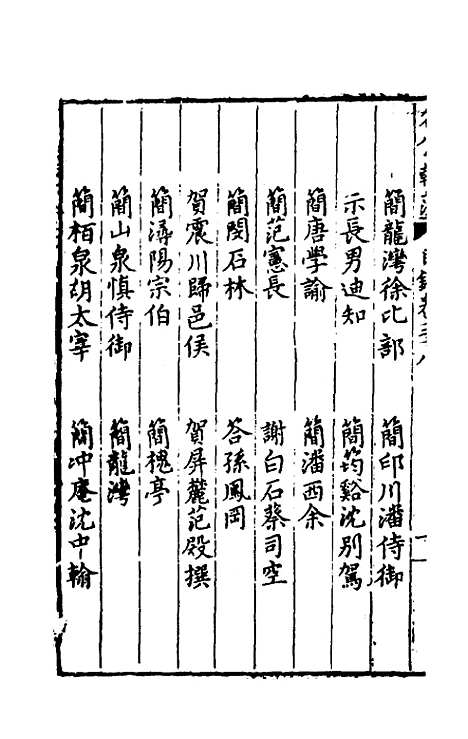 簡龍灣徐比部　簡印川潘侍御
示長男迪知　簡筠谿沈別駕
簡唐學諭　簡潘西余
簡范憲長　謝白石蔡司空
簡閔石林　答孫鳳岡
賀震川歸邑侯　賀屏麓范殿撰
簡潯陽宗伯　簡槐亭
簡山泉慎侍御　簡龍灣
簡栢泉胡太宰　簡冲庵沈中翰